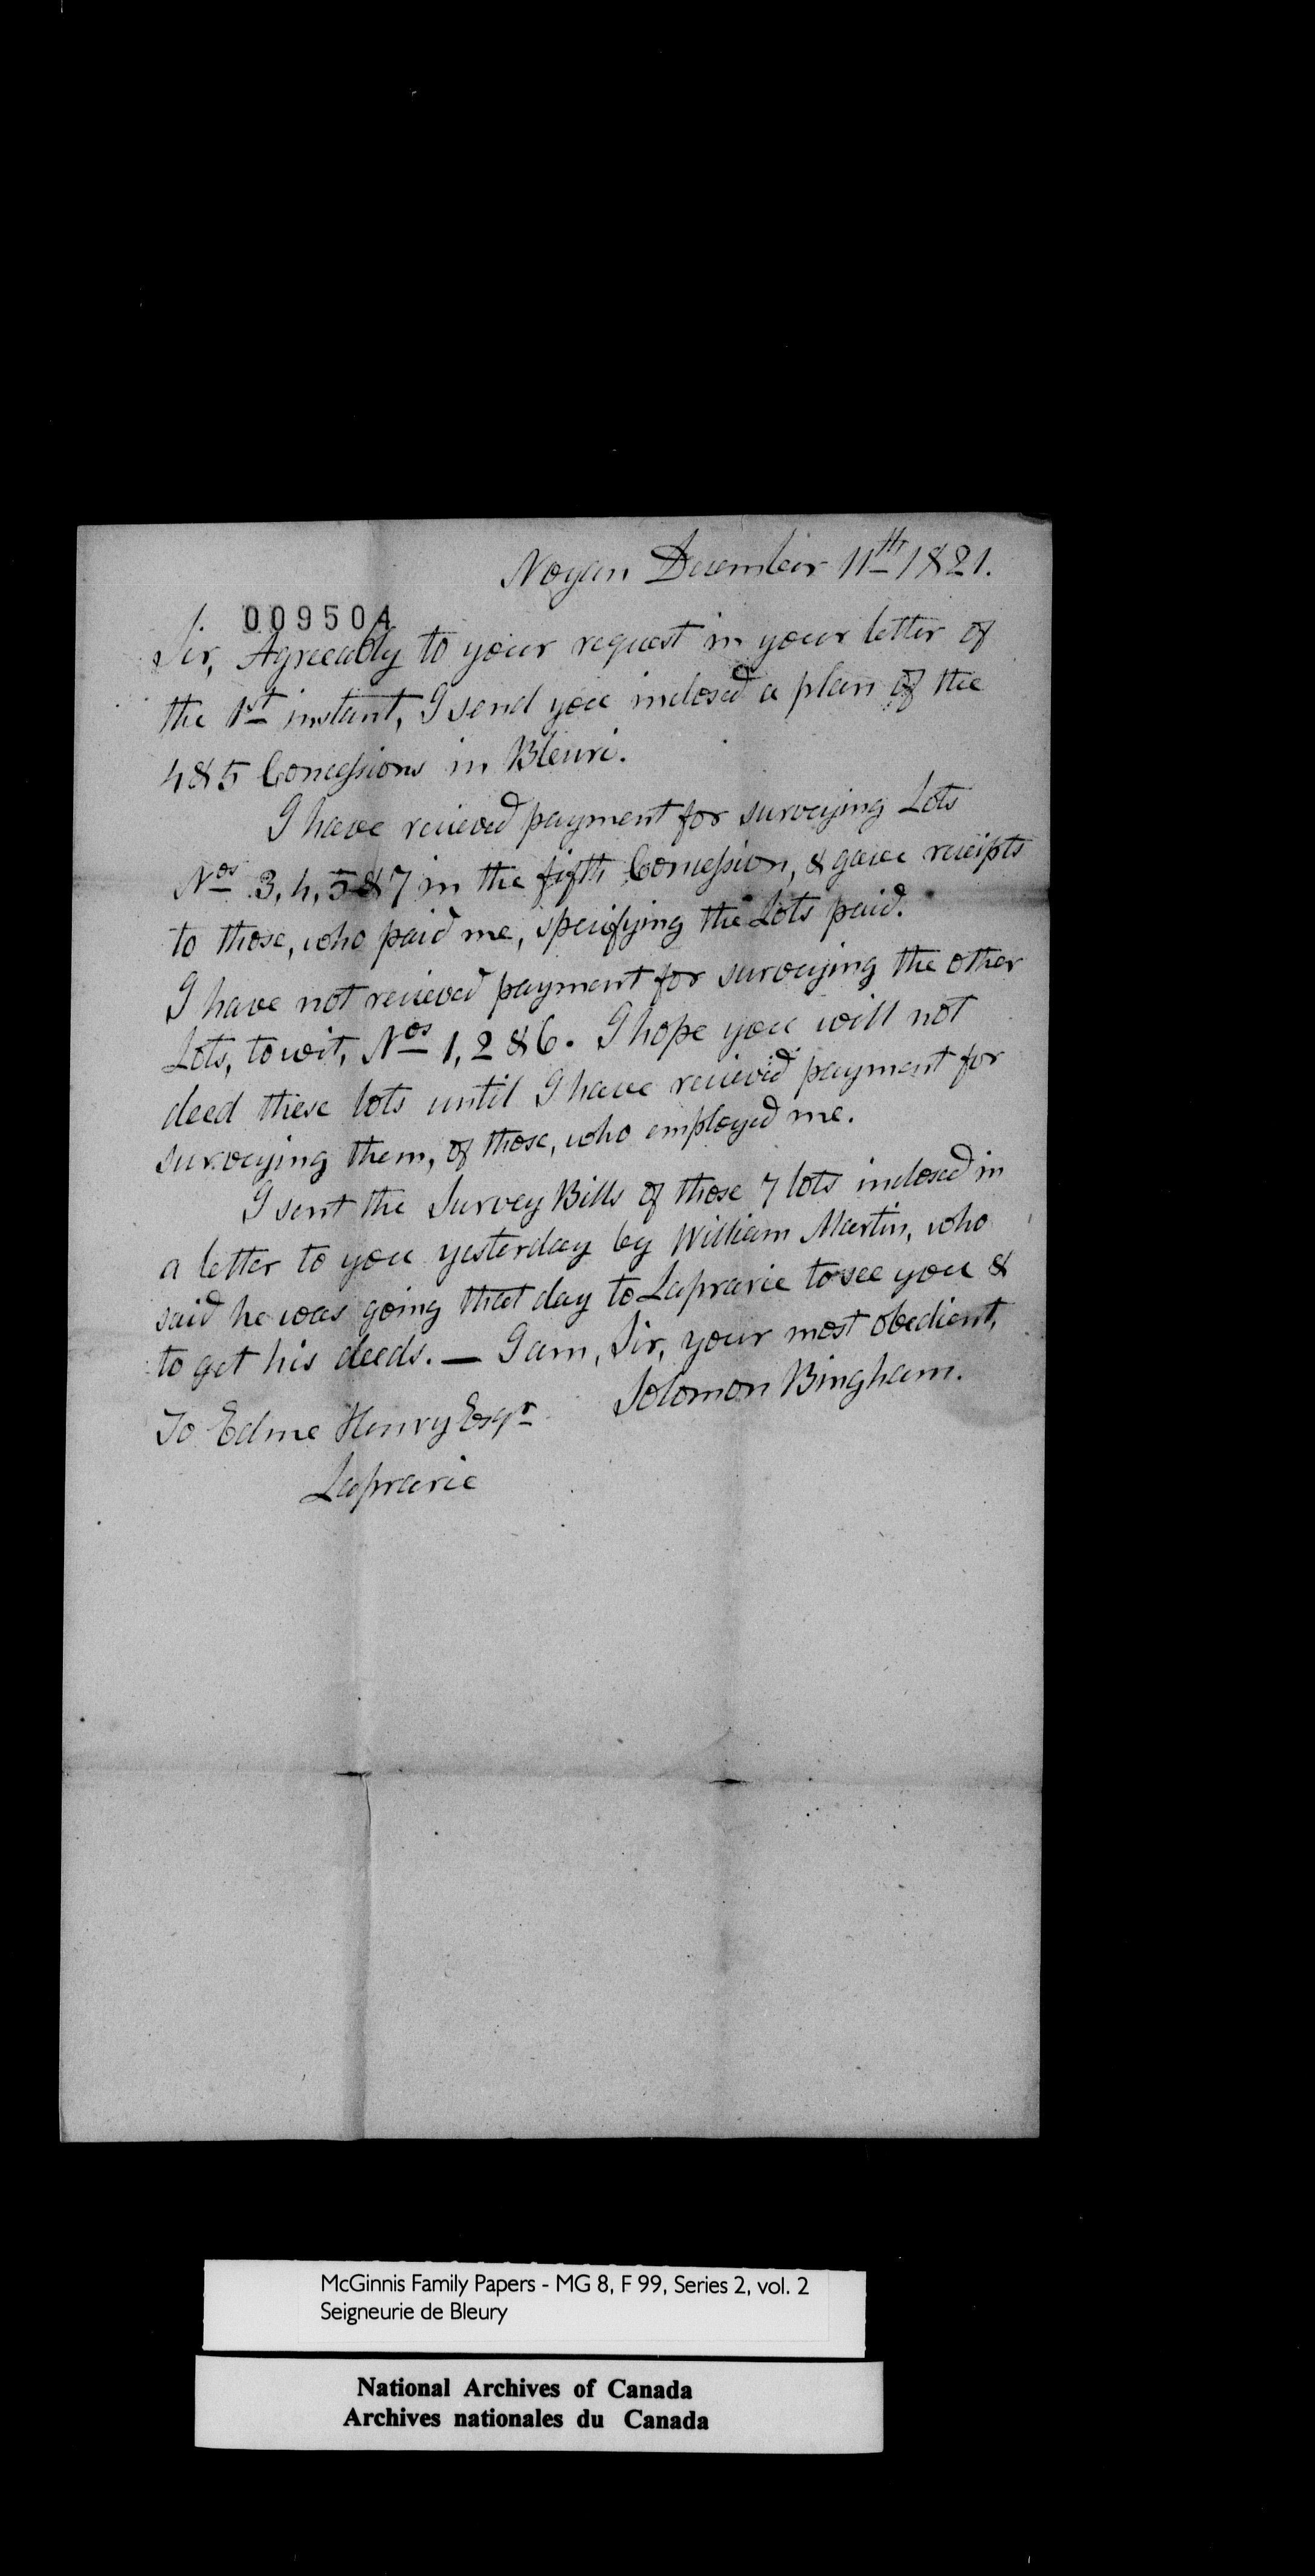 Noyan December 11th 1821.
009504
Sir, Agreeably to your request in your letter of
the 1st instant, I send you inclosed a plan of the
4 & 5 Concessions in Bleuri.
I have recieved payment for surveying Lots
Nos 3, 4, 5 & 7 in the fifth Concession, & gave reciepts
to those, who paid me, specifying the Lots paid.
I have not recieved payment for surveying the other
Lots, to wit, Nos 1, 2 & 6. I hope you will not
deed these lots until I have recieved payment for
surveying them, of those, who employed me.
I sent the Survey Bills of those 7 lots inclosed in
a letter to you yesterday by William Martin, who
said he was going that day to Laprarie to see you &
to get his deeds. — I am, Sir, your most obedient,
Solomon Bingham.
To Edme Henry Esqr
Laprarie
McGinnis Family Papers - MG 8, F 99, Series 2, vol. 2
Seigneurie de Bleury
National Archives of Canada
Archives nationales du Canada